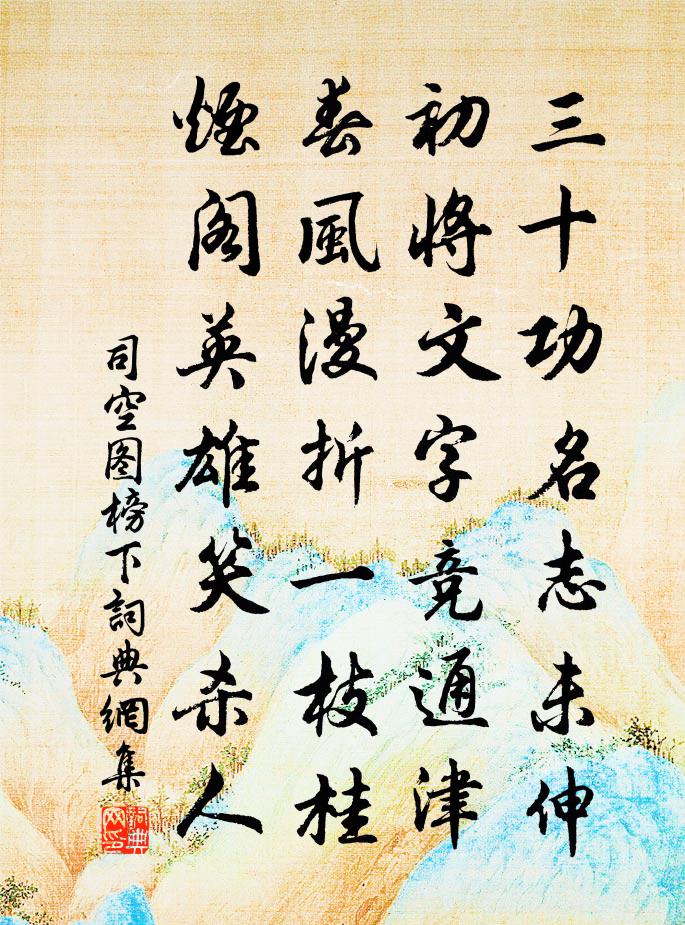 三十功名志未伸
初將文字竞通津
春風漫折一枝桂
煙阁英雄笑杀人
司空图榜下詞典網集
詞典网印